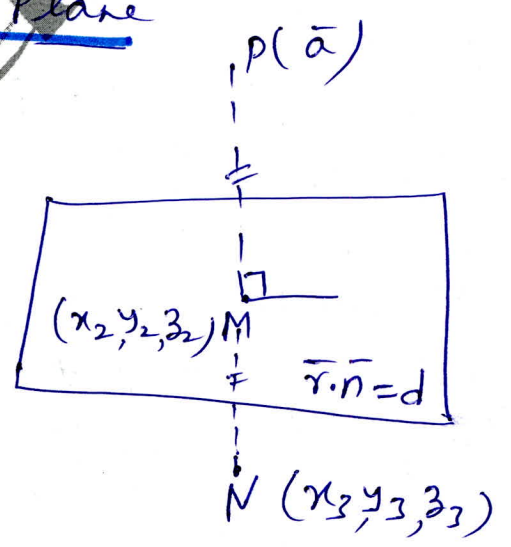 Plane
P(ā)
(x₂,y₂,z₂) M
r̄·n̄=d
N (x₃,y₃,z₃)